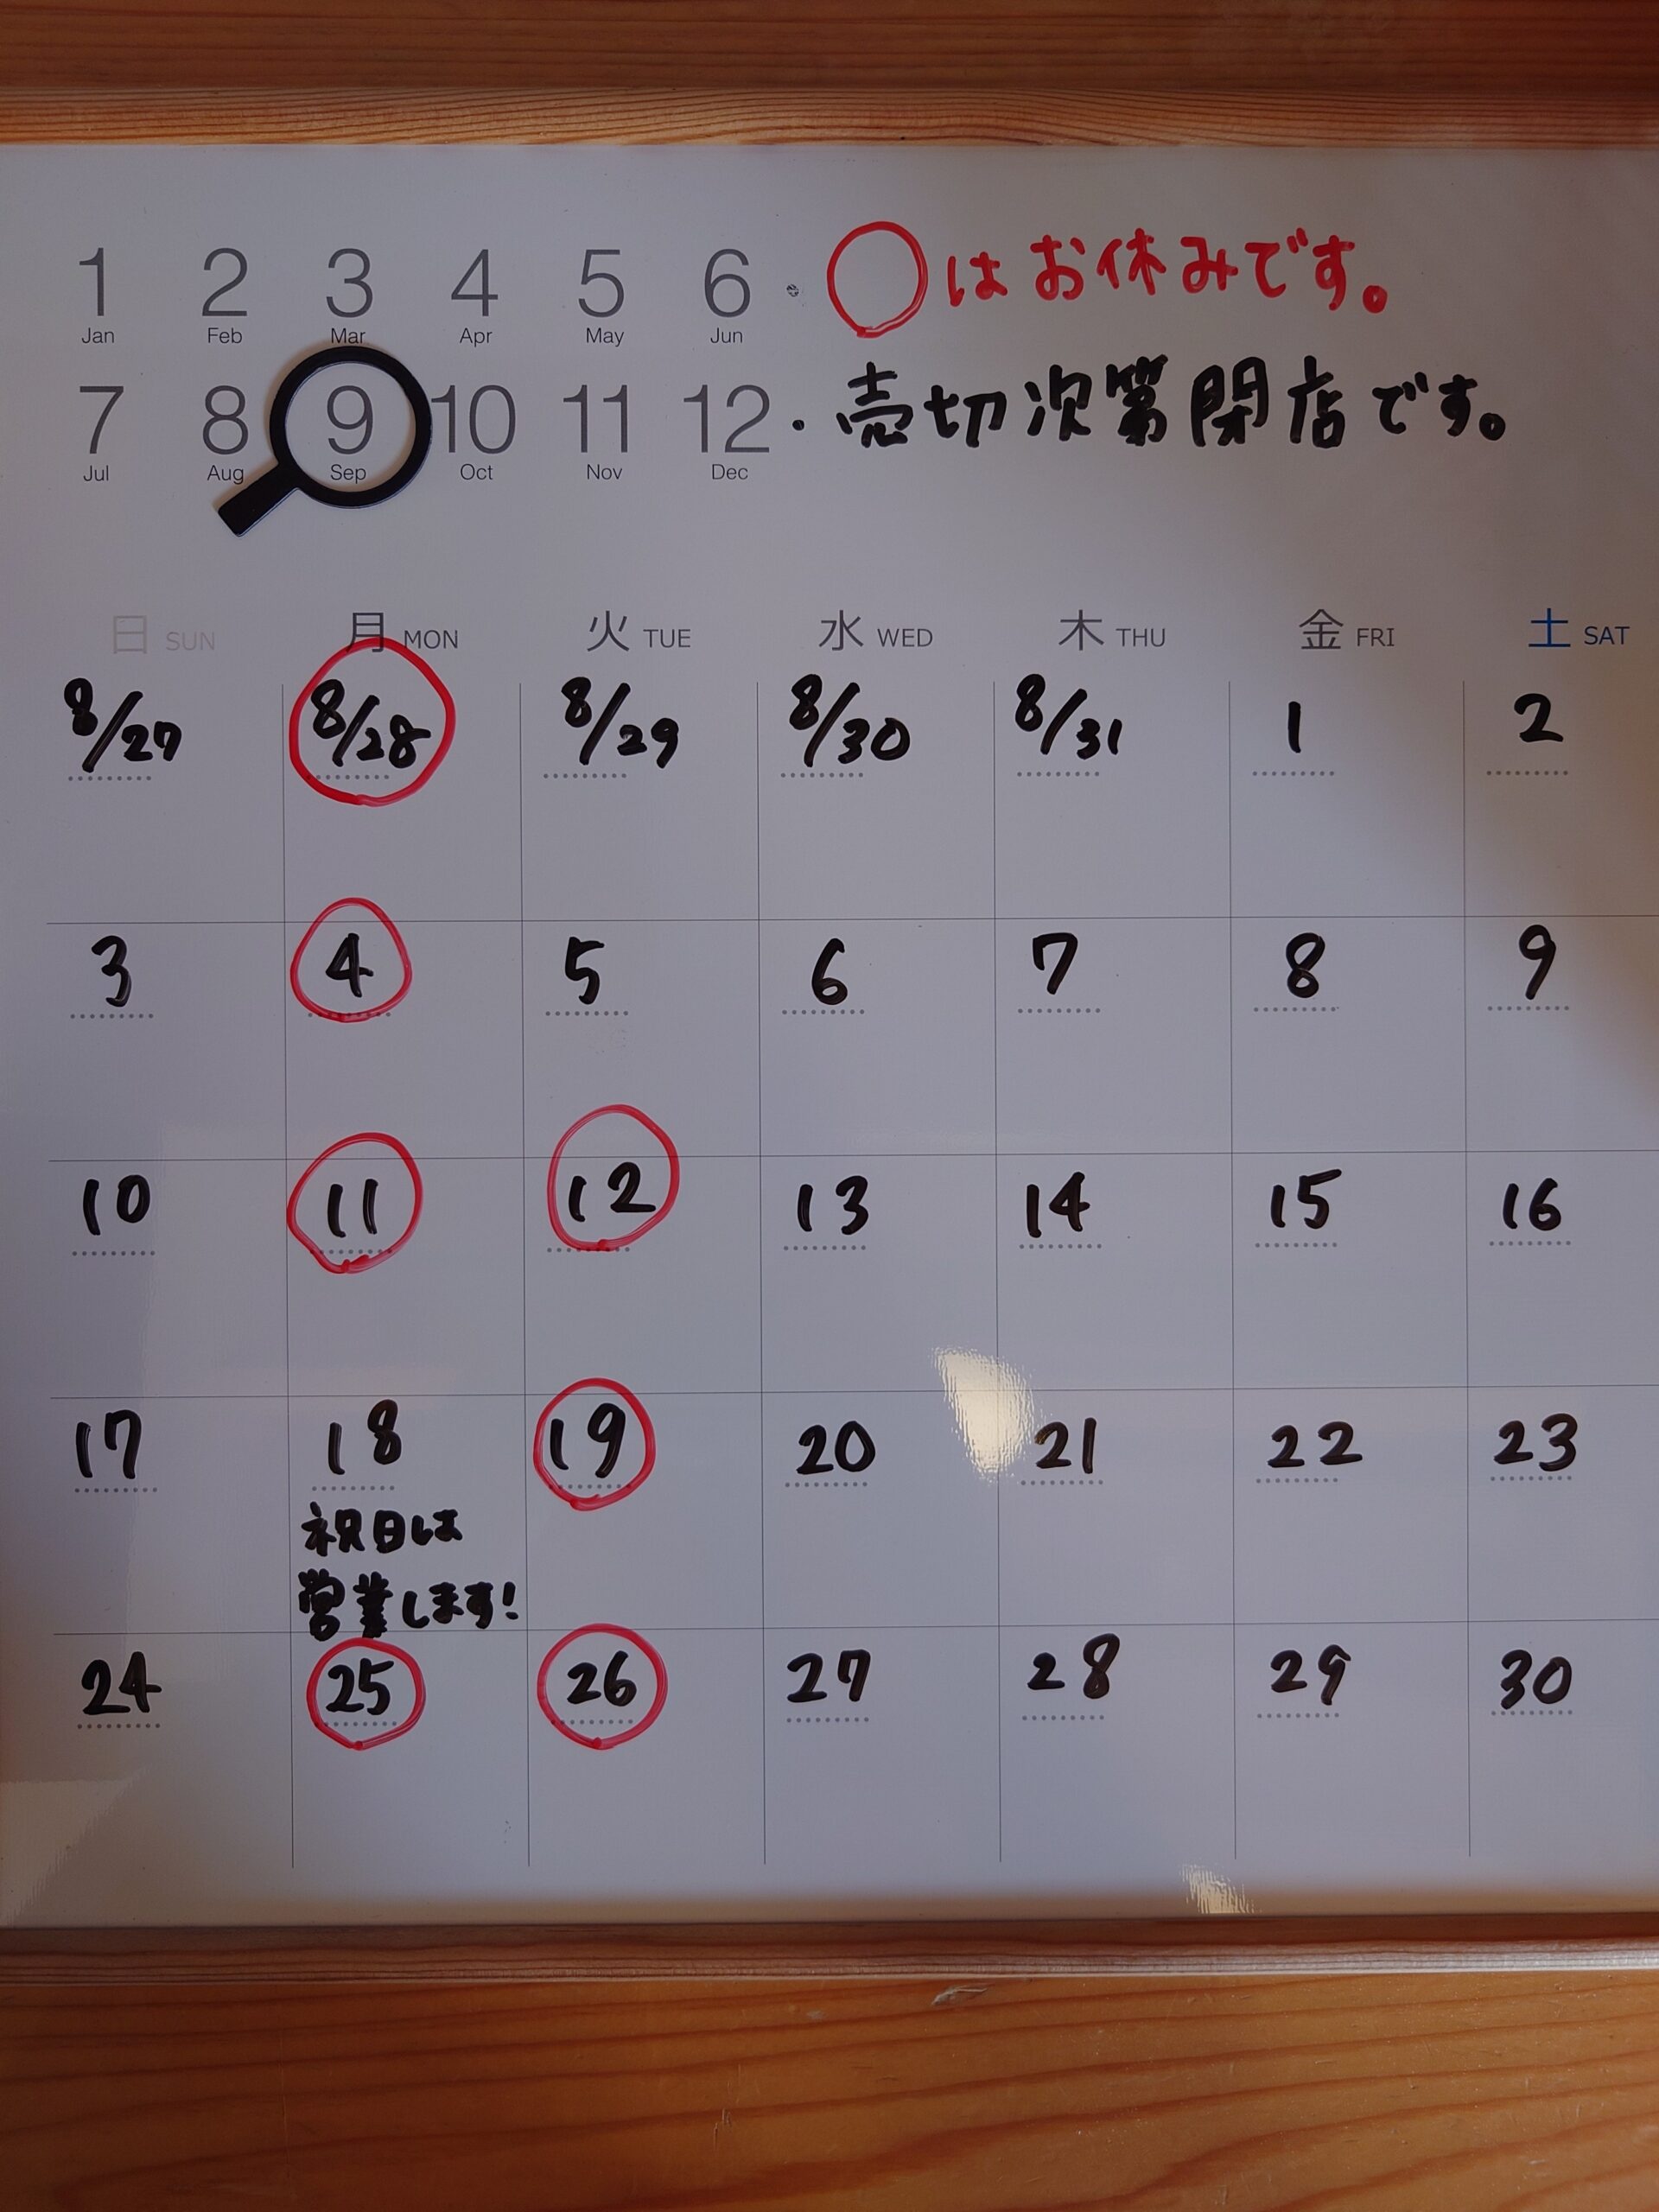 1 2 3 4 5 6
Jan Feb Mar Apr May Jun
・◯はお休みです。
7 8 9 10 11 12
Jul Aug Sep Oct Nov Dec
・売切次第閉店です。
日 SUN 月 MON 火 TUE 水 WED 木 THU 金 FRI 土 SAT
8/27 8/28 8/29 8/30 8/31 1 2
3 4 5 6 7 8 9
10 11 12 13 14 15 16
17 18 19 20 21 22 23
祝日は
営業します!
24 25 26 27 28 29 30